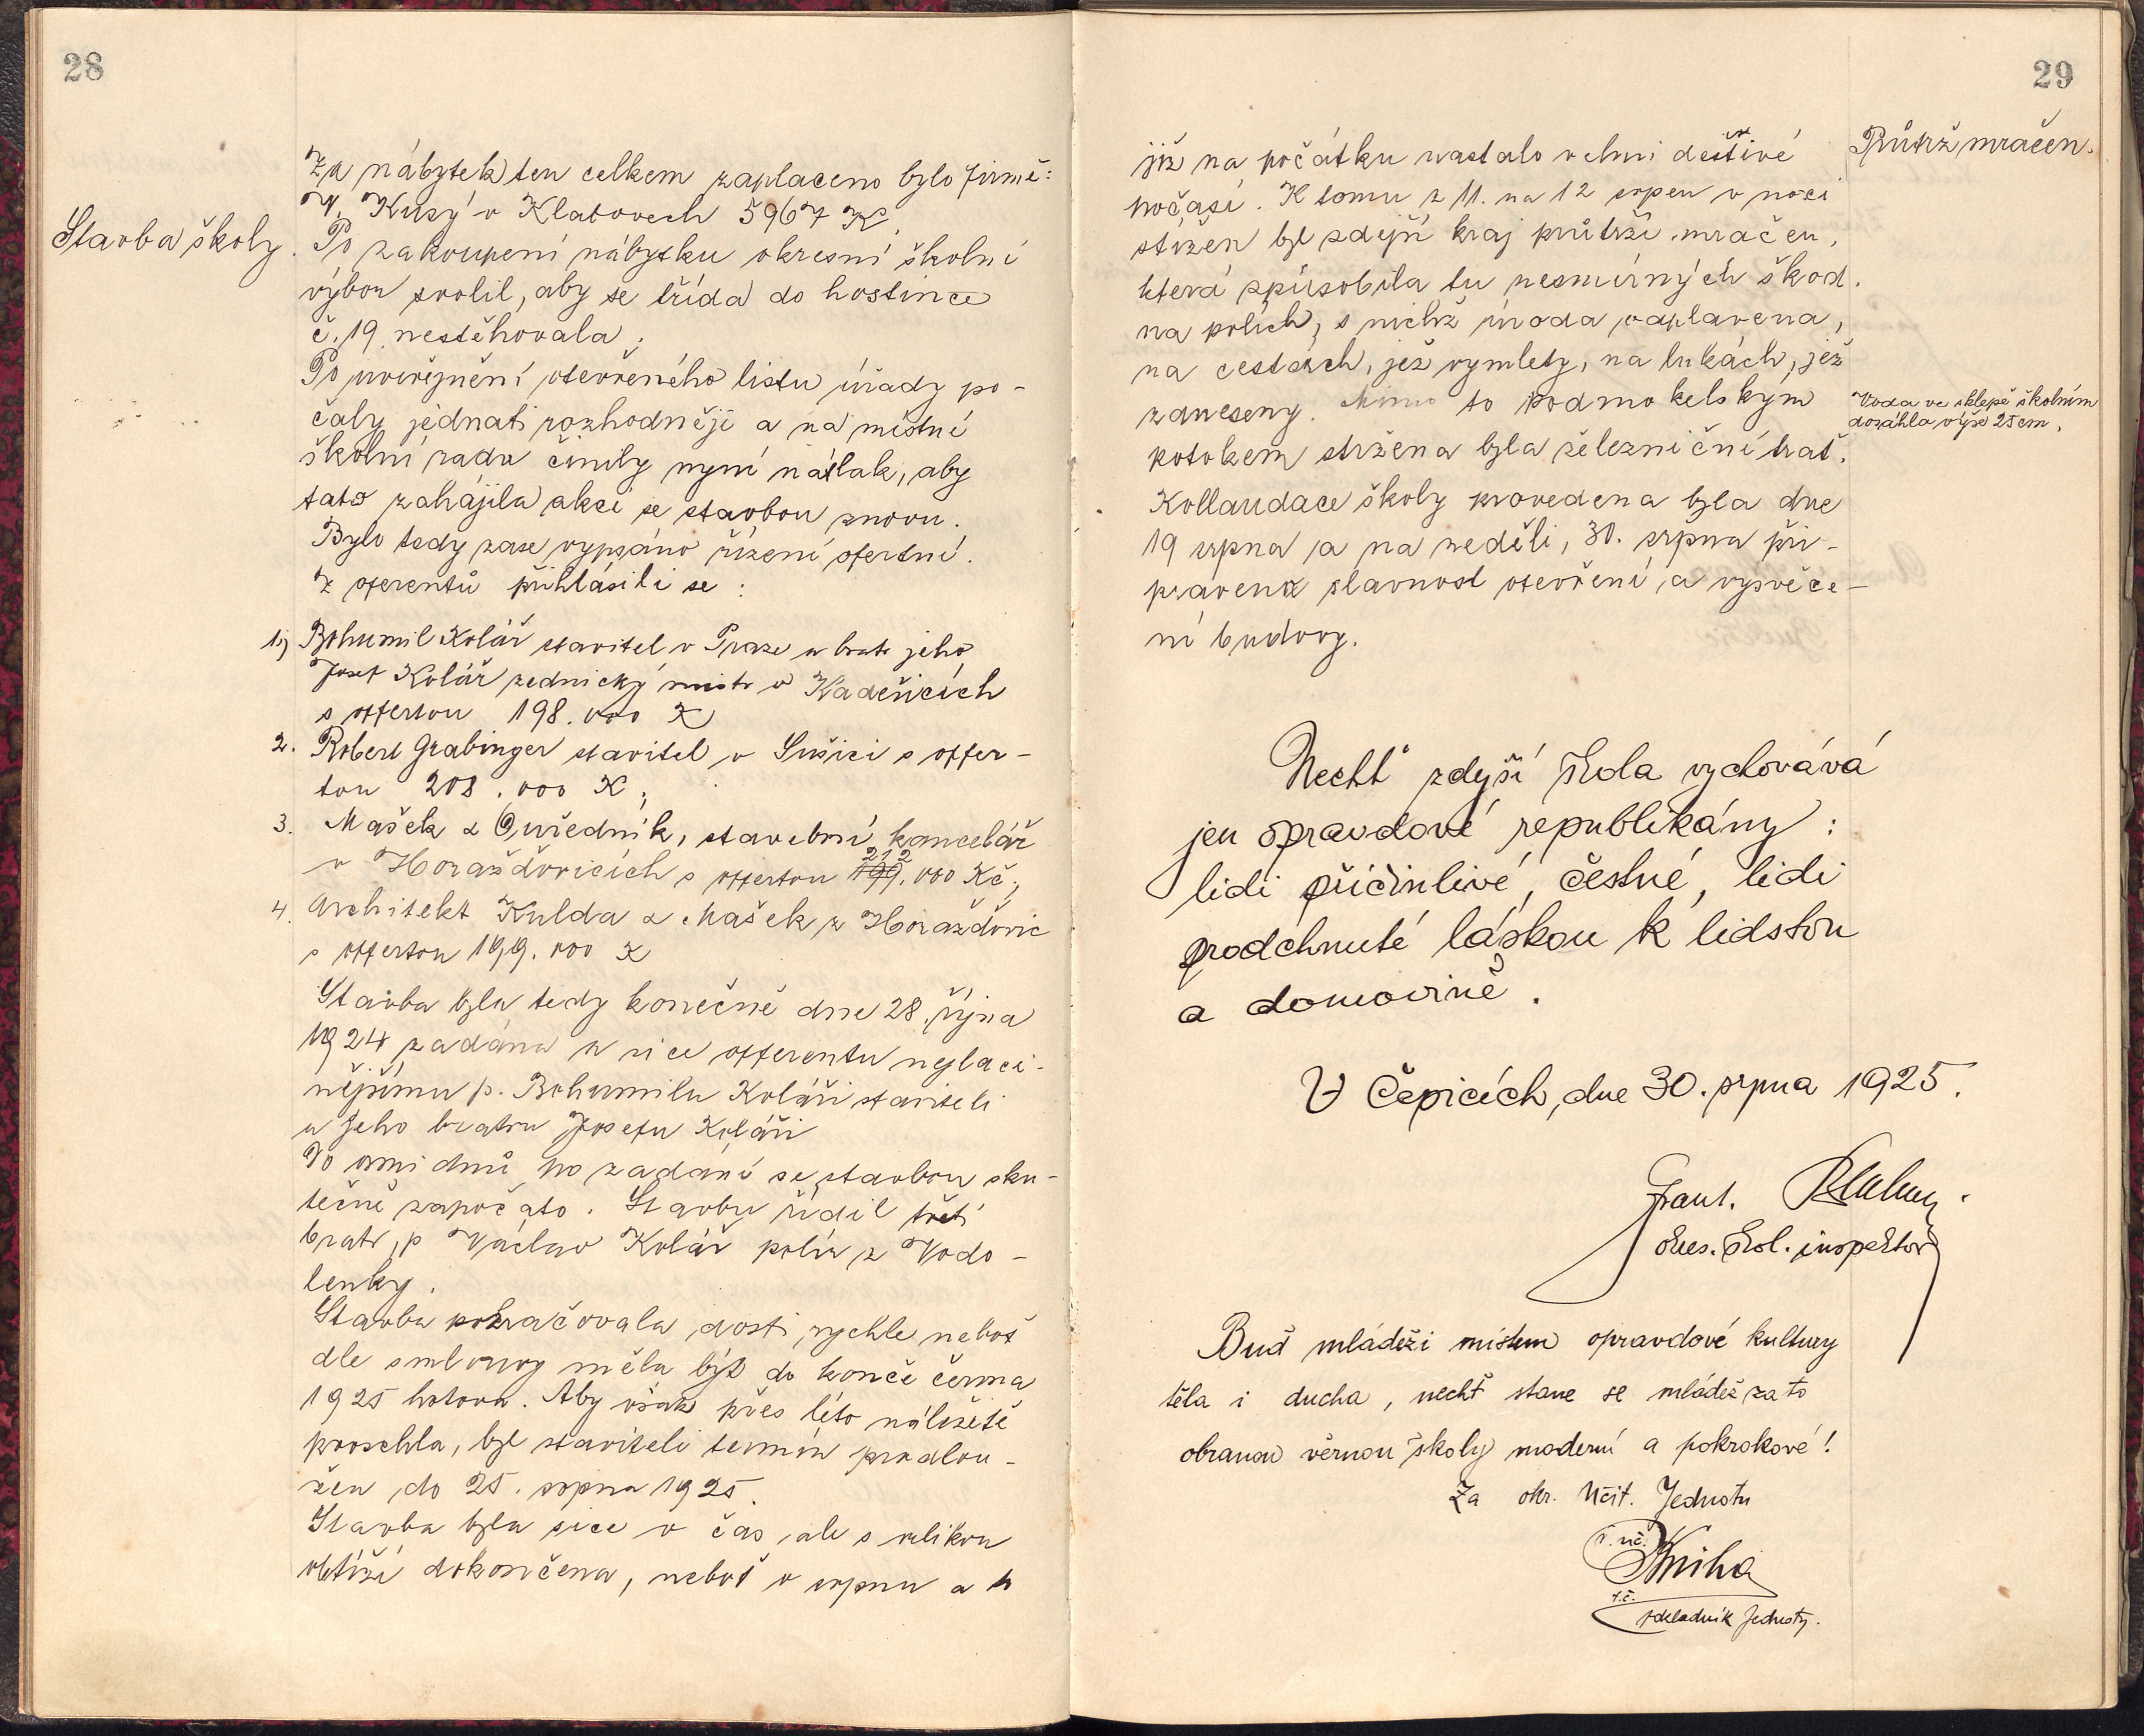 28
Za nábytek ten celkem zaplaceno bylo firmě:
Kusý v Klatovech 5967 K.
Stavba školy.
Po zakoupení nábytku okresní školní
výbor svolil, aby se třída do hostince
č. 19 nestěhovala.
Po uveřejnění otevřeného listu úřady po-
čaly jednati rozhodněji a na místní
školní radu činily nyní nátlak, aby
tato zahájila akci se stavbou znovu.
Bylo tedy zase vypsáno řízení ofertní.
Z oferentů přihlásili se:
1) Bohumil Kolář stavitel v Praze a bratr jeho
Josef Kolář zednický mistr v Kadešicích
s offertou 198.000 K
2. Robert Grabinger stavitel v Sušici s offer-
tou 208.000 K;
3. Mašek & Ouředník, stavební kancelář
v Horažďovicích s offertou 199 212.000 Kč;
4. Architekt Kulda & Mašek z Horažďovic
s offertou 199.000 K
Stavba byla tedy konečně dne 28. října
1924 zadána sice offerentu nejlaci-
nějšímu p. Bohumilu Koláři staviteli
a jeho bratru Josefu Koláři
Do osmi dnů po zadání se stavbou sku-
tečně započato. Stavbu řídil třetí
bratr, p Václav Kolář polír z Vodo-
lenky.
Stavba pokračovala dosti rychle neboť
dle smlouvy měla být do konce června
1925 hotova. Aby však přes léto náležitě
proschla, byl staviteli termín prodlou-
žen do 25. srpna 1925.
Stavba byla sice v čas, ale s velikou
obtíží dokončena, neboť v srpnu a to
29
již na počátku nastalo velmi deštivé
Průtrž mračen.
počasí. K tomu z 11. na 12 srpen v noci
stížen byl zdejší kraj průtrží mračen,
která způsobila tu nesmírných škod.
na polích, s nichž úroda odplavena,
na cestách, jež vymlety, na lukách, jež
zaneseny. Mimo to podmokelským
Voda ve sklepě školním
dosáhla výše 25 cm.
potokem stržena byla železniční trať.
Kollaudace školy provedena byla dne
19 srpna a na neděli, 30. srpna při-
pravena slavnost otevření a vysvěce-
ní budovy.
Nechť zdejší škola vychovává
jen opravdové republikány:
lidi přičinlivé, čestné, lidi
prodchnuté láskou k lidstvu
a domovině.
V Čepicích, dne 30. srpna 1925.
Frant.
okres. škol. inspektor
Buď mládeži místem opravdové kultury
těla i ducha, nechť stane se mládež za to
obranou věrnou školy moderní a pokrokové!
Za okr. Učit. Jednotu
ř. uč.
Kniha
t.č.
pokladník Jednoty.